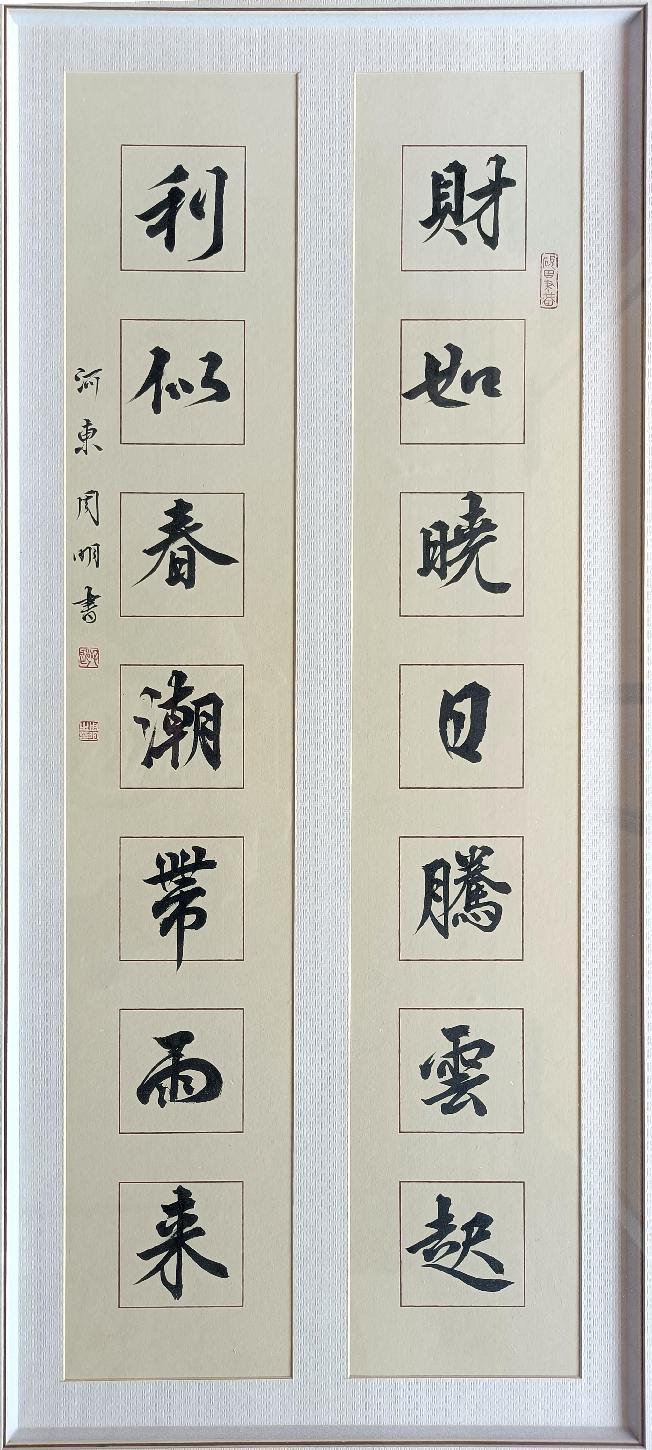 財如曉日騰雲起
利似春潮帶雨来
河東周明書